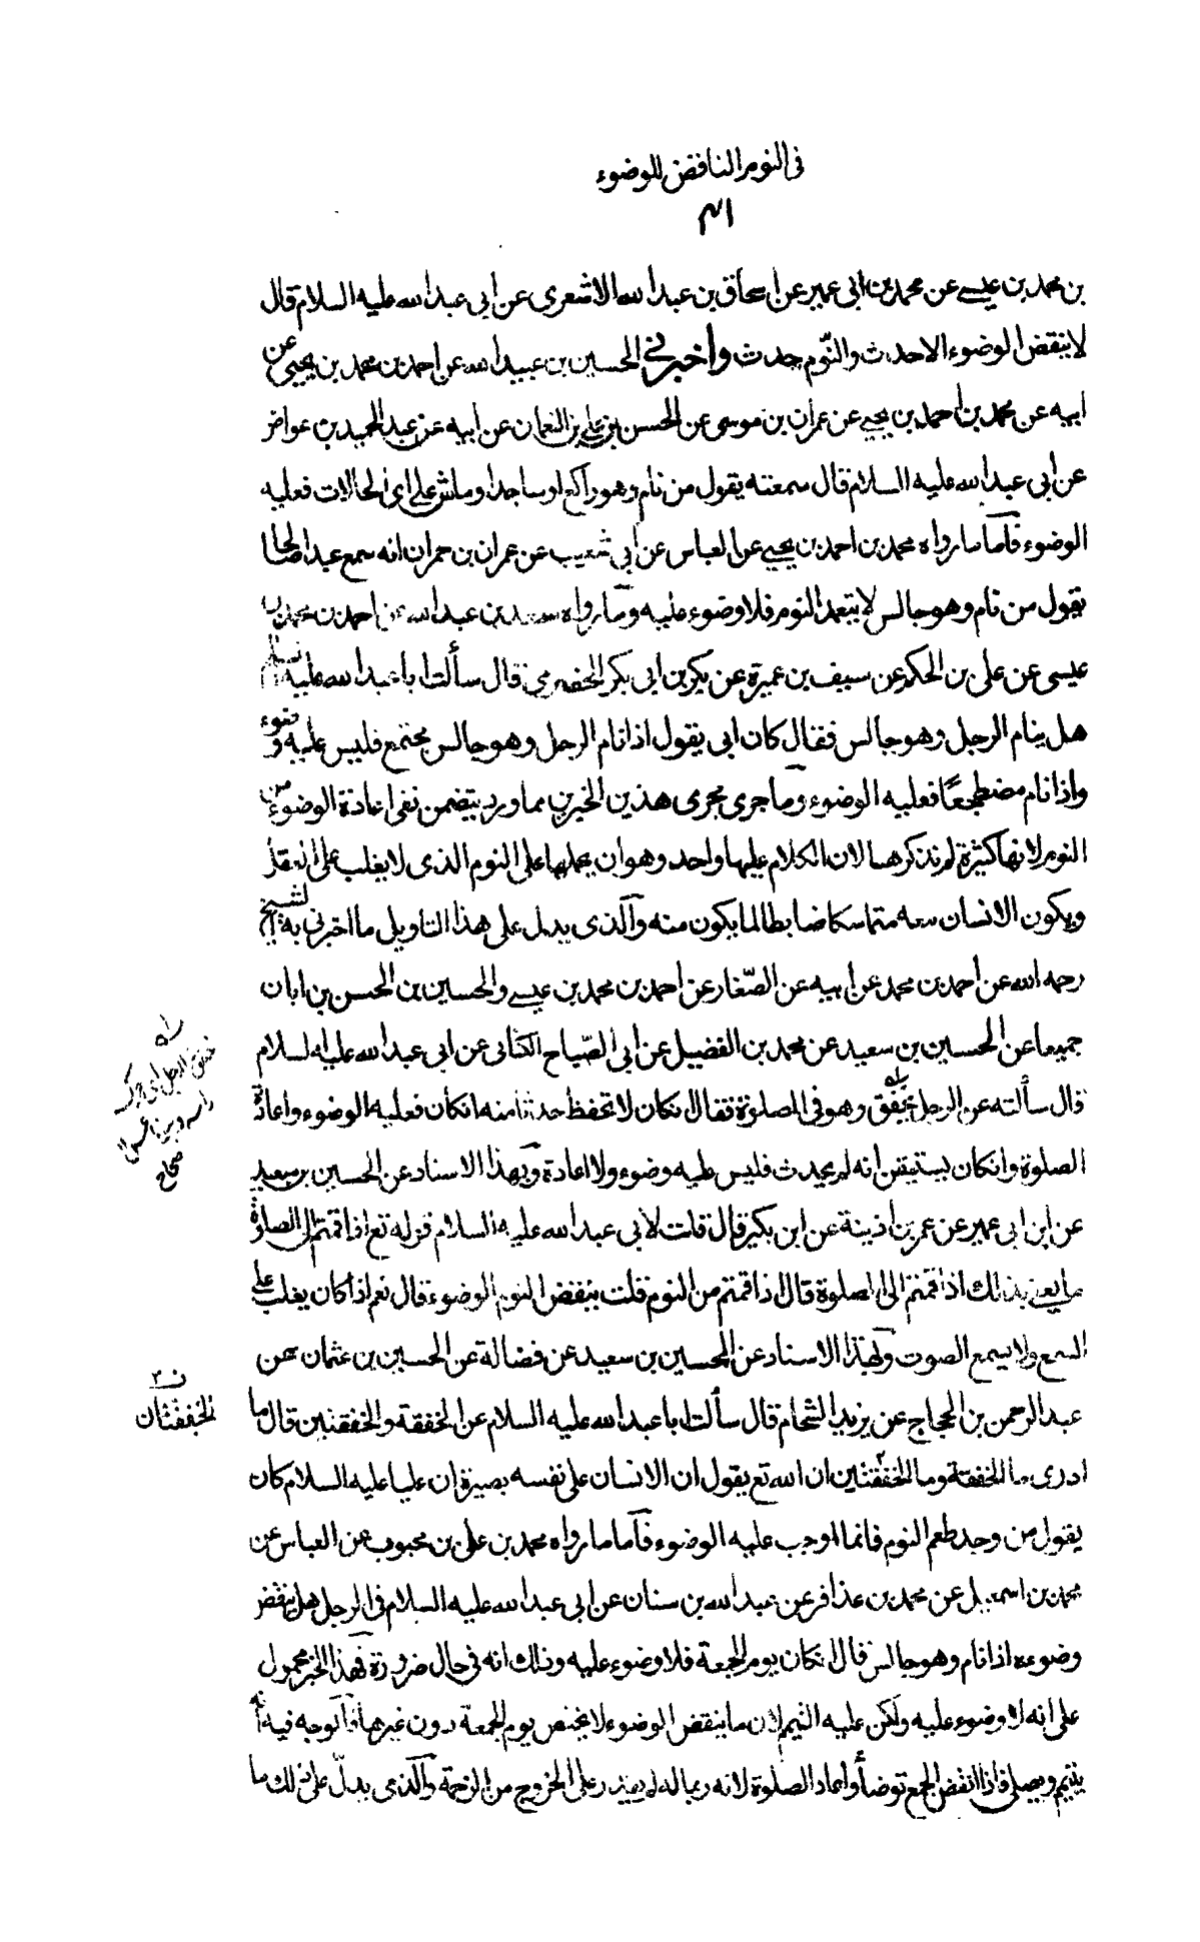 فى النوم الناقض للوضوء
٤١
بن محمد بن عيسى عن محمد بن ابى عمير عن اسحاق بن عبد الله الاشعرى عن ابى عبد الله عليه السلام قال
لا ينقض الوضوء الا حدث والنّوم حدث واخبرنى الحسين بن عبيد الله عن احمد بن محمد بن يحيى عن
ابيه عن محمد بن احمد بن يحيى عن عمران بن موسى عن الحسن بن على بن النعمان عن ابيه عن عبد الحميد بن عواض
عن ابى عبد الله عليه السلام قال سمعته يقول من نام وهو راكع او ساجد او ماش على اى الحالات فعليه
الوضوء فأما ما رواه محمد بن احمد بن يحيى عن العباس عن ابى شعيب عن عمران بن حمران انه سمع عبدا صالحا
يقول من نام وهو جالس لا يتعمد النوم فلا وضوء عليه وما رواه سعد بن عبد الله عن احمد بن محمد بن
عيسى عن على بن الحكم عن سيف بن عميرة عن بكر بن ابى بكر الحضرمى قال سألت ابا عبد الله عليه السلام
هل ينام الرجل وهو جالس فقال كان ابى يقول اذا نام الرجل وهو جالس مجتمع فليس عليه وضوء
واذا نام مضطجعًا فعليه الوضوء وما جرى مجرى هذين الخبرين مما ورد يتضمن نفى اعادة الوضوء من
النوم لانها كثيرة لم نذكرها لان الكلام عليها واحد وهو ان يحملها على النوم الذى لا يغلب على العقل
ويكون الانسان معه متماسكا ضابطا لما يكون منه والذى يدل على هذا التاويل ما اخبرنى به الشيخ
رحمه الله عن احمد بن محمد عن ابيه عن الصّفار عن احمد بن محمد بن عيسى والحسين بن الحسن بن ابان
جميعا عن الحسين بن سعيد عن محمد بن الفضيل عن ابى الصّباح الكنانى عن ابى عبد الله عليه السلام
قال سألته عن الرجل يخفق وهو فى الصلوة فقال ان كان لا تحفظ حدثا منه ان كان فعليه الوضوء واعادة
الصلوة وان كان يستيقن انه لم يحدث فليس عليه وضوء ولا اعادة وبهذا الاسناد عن الحسين بن سعيد
عن ابن ابى عمير عن عمر بن اذينة عن ابن بكير قال قلت لأبى عبد الله عليه السلام قوله تع اذا قمتم الى الصلوة
ما يعنى بذلك اذا قمتم الى الصلوة قال اذا قمتم من النوم قلت ينقض النوم الوضوء فقال نعم اذا كان يغلب على
السمع ولا يسمع الصوت وبهذا الاسناد عن الحسين بن سعيد عن فضالة عن الحسين بن عثمان عن
عبد الرحمن بن الحجاج عن يزيد الشحام قال سألت ابا عبد الله عليه السلام عن الخفقة والخفقتين قال ما
ادرى ما الخفقة وما الخفقتين ان الله تع يقول ان الانسان على نفسه بصيرة ان عليا عليه السلام كان
يقول من وجد طعم النوم فانما اوجب عليه الوضوء فأما ما رواه محمد بن على بن محبوب عن العباس عن
محمد بن اسمعيل عن محمد بن عذافر عن عبد الله بن سنان عن ابى عبد الله عليه السلام فى الرجل هل ينقض
وضوءه اذا نام وهو جالس قال ان كان يوم الجمعة فلا وضوء عليه وذلك انه فى حال ضرورة فهذا الخبر محمول
على انه لا وضوء عليه ولكن عليه التيمم لان ما ينقض الوضوء لا يختص يوم الجمعة دون غيرها والوجه فيه انه
يتيمم ويصلى فاذا انفض الجمع توضأ واعاد الصلوة لانه ربما لا يقدر على الخروج من الزحمة والذى يدلّ على ذلك ما
خفق الرجل اى حرك
راسه وهو ناعس
صحاح
الخفقتان